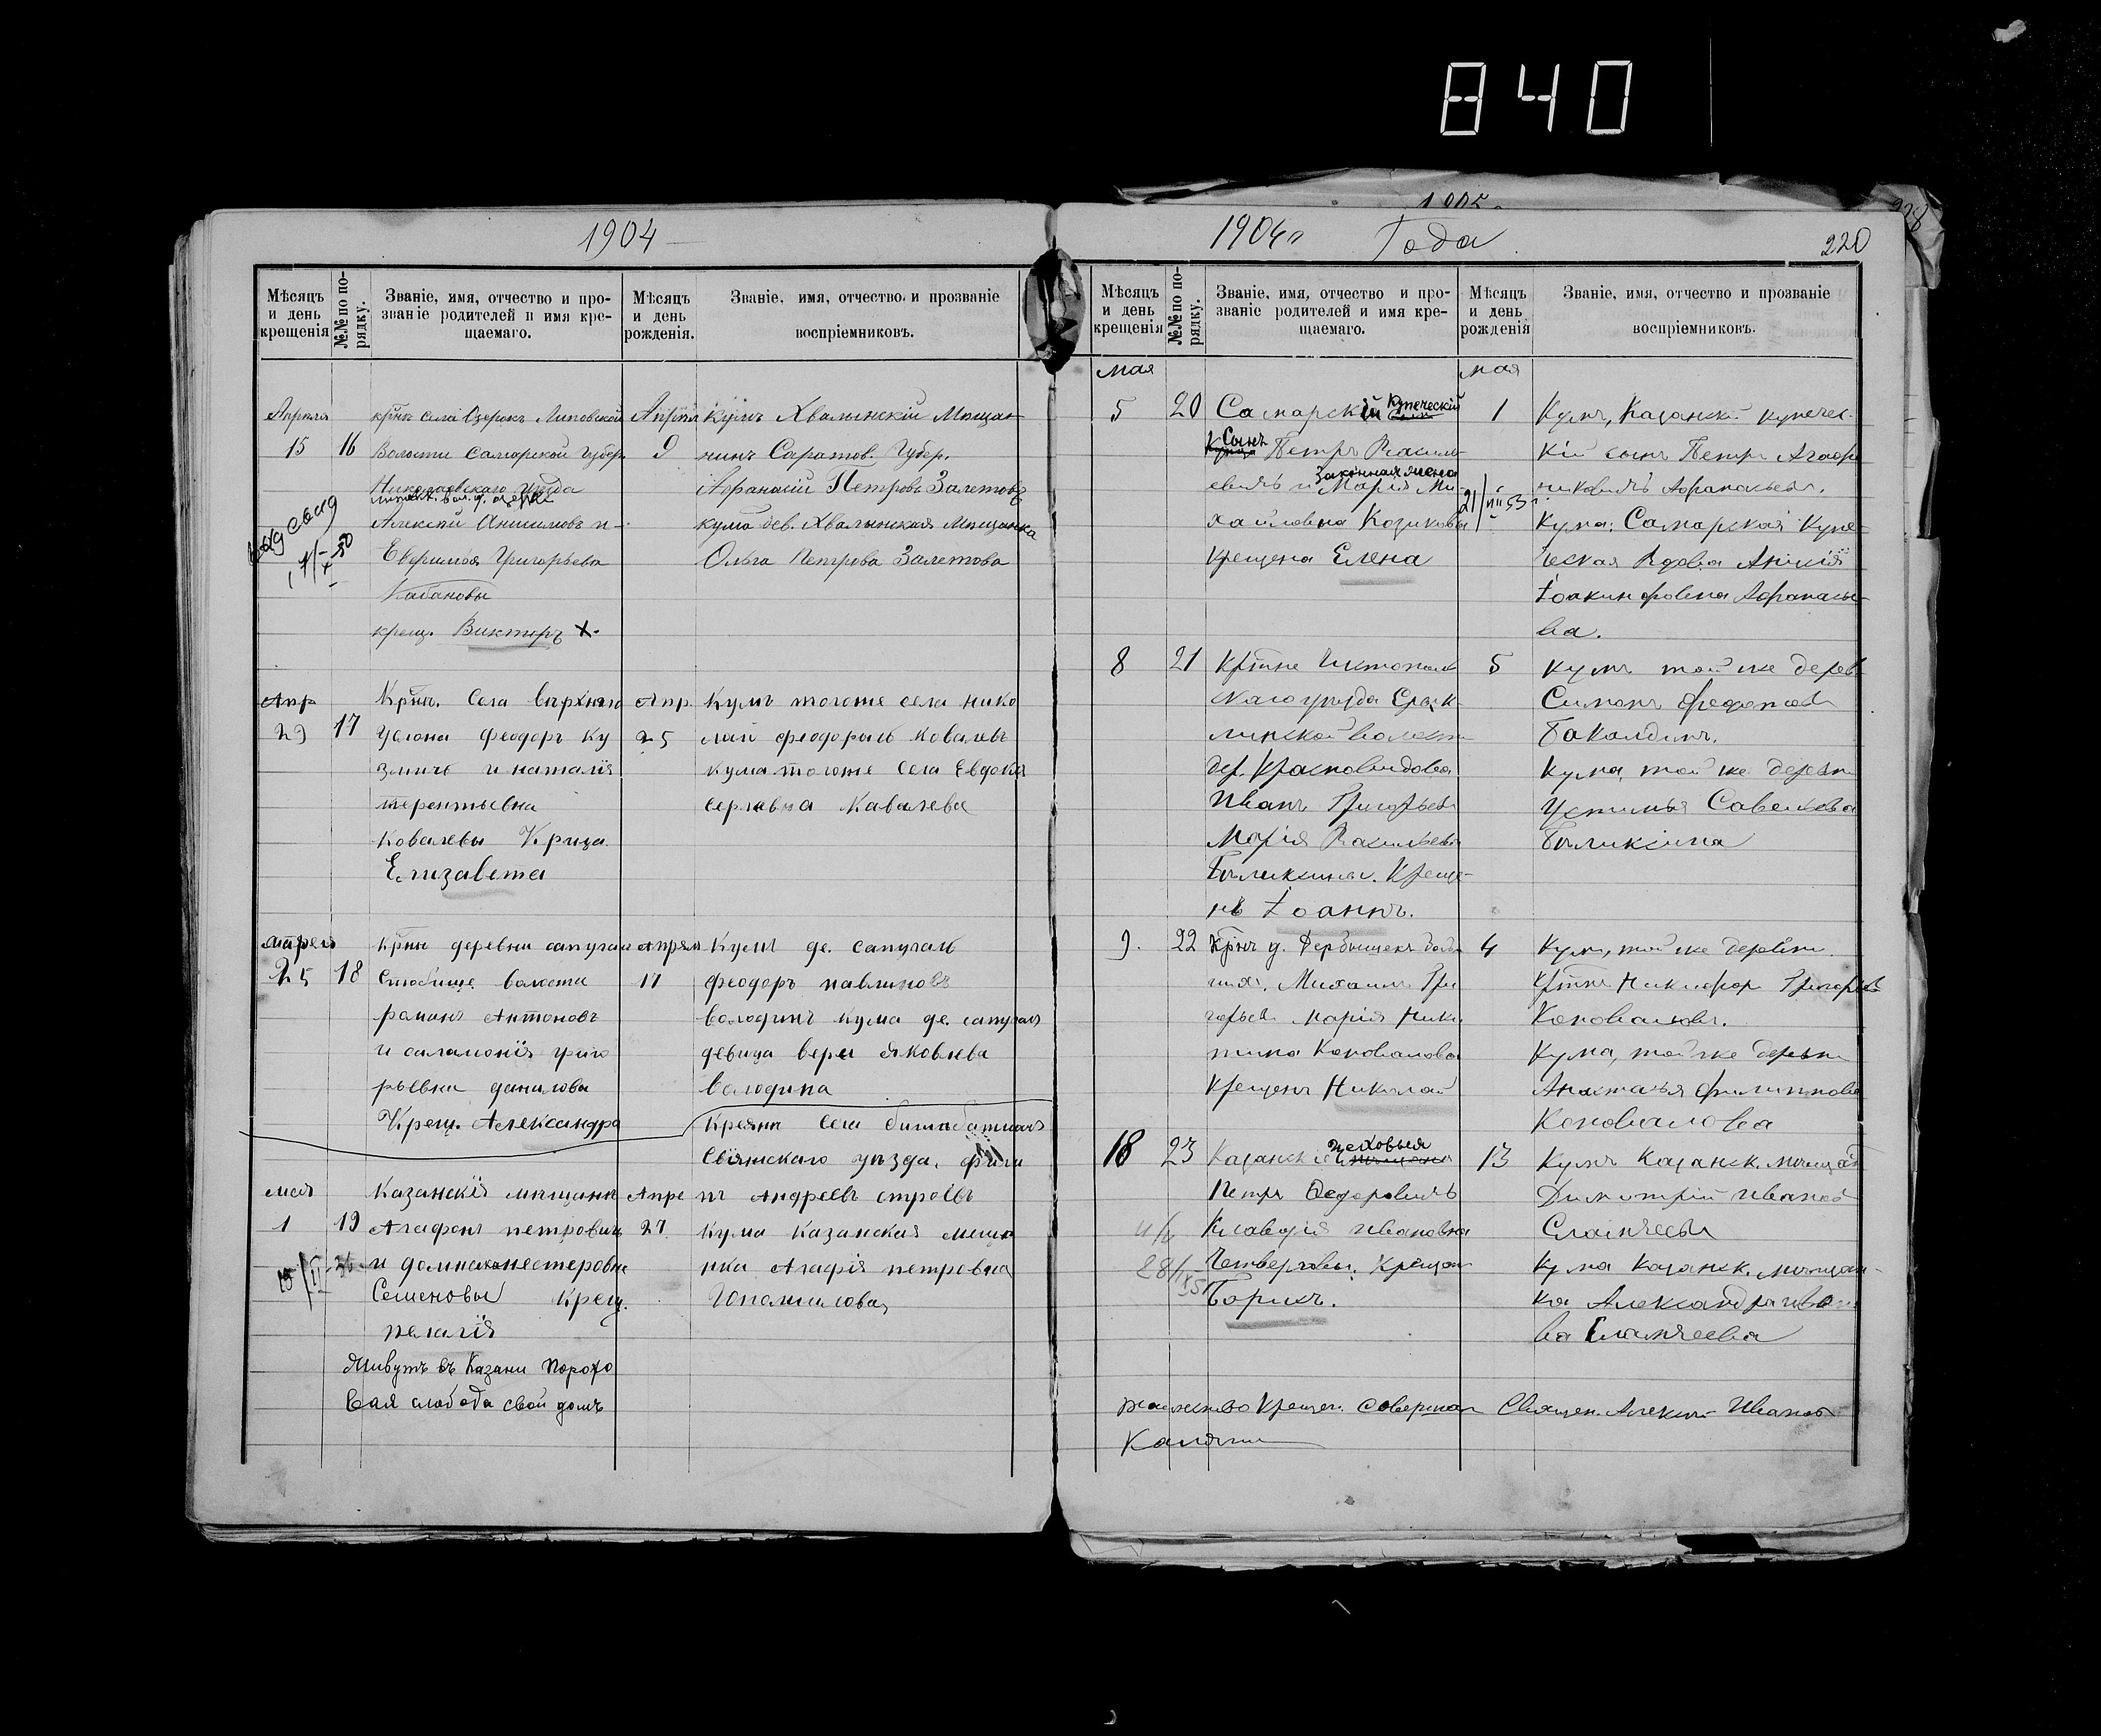 840
1905
228
1904
Мѣсяцъ и день крещенія
№№ по порядку.
Званіе, имя, отчество и про-
званіе родителей и имя кре-
щаемаго.
Мѣсяцъ и день рожденія.
Званіе, имя, отчество и прозваніе
воспріемниковъ.
Апреля 15
16
крнъ села Озерокъ Липовской
Волости Самарской Губер.
Николаевскаго Уѣзда
Алексѣй Анисимовъ и
Евфимья Григорьева
Кабановы
крещ. Викторъ х.
Апреля 9
Кумъ Хвалынскій Мѣщан-
нинъ Саратов. Губер.
Афранасій Петровъ Залетовъ
кума дев. Хвалынская Мѣщанка
Ольга Петрова Залетова
Апр 29
17
Крнъ. Села верхняго
Услона феодоръ Ку
змичъ и наталія
терентьевна
Ковалевы Крища.
Елизавета
Апр. 25
Кумъ тогоже села нико
лай феодоровъ Ковалевъ
кума тогоже села Евдокія
Ковалева
Апреля 25
18
Крнъ деревни сапугали
волости
романъ Антоновъ
и саламонія григо
рьевна данилова
Крещ. Александра
апреля 17
Кумъ де. сапугаль
феодоръ павлиновъ
володинъ кума де. сапугал
девица вера яковлева
володина
мая 1
19
Казанскія мѣщане
Агафонъ петровичъ
и домна нестеровна
Семеновы Крещ.
пелагія
Живутъ въ Казани Порохо
вая слобода свой домъ
Апре 27
Села
Свіяжскаго уѣзда. фили
пъ Андреевъ строевъ
кума Казанская мѣща
нка Агафія петровна
1904 Года
220
Мѣсяцъ и день крещенія
№№ по порядку.
Званіе, имя, отчество и про-
званіе родителей и имя кре-
щаемаго.
Мѣсяцъ и день рожденія
Званіе, имя, отчество и прозваніе
воспріемниковъ.
мая
мая
5
20
Самарскій Купеческій
Сынъ Петръ Василь-
евичъ и законная жена Марія Ми-
хайловна Козиковы
крещена Елена
1
Кумъ, Казанскій купечес-
кій сынъ Петръ Агафо
никовичъ Афанасьевъ.
Кума: Самарская Купе-
ческая Вдова Анисія
Іоакинфовна Афанасье-
ва.
8
21
Кртне Чистополь
скаго уѣзда
волости
дер. Красновидова
Иванъ Григорьевъ
Марія Васильева
Белихины. Креще-
нъ Іоаннъ.
5
Кумъ той же дерев
Симонъ Федотовъ
Бакалдинъ.
Кума, той же деревни
Устинья Савелова
9.
22
Крнъ д.
Михаилъ Гри
горьевъ Марія Ники
тина Коновалова
Крещенъ Николай
4
Кумъ, той же деревни
Крттнъ Никифоръ Григорьев
Коноваловъ.
Кума, той же деревни
Анастасья Филиппова
Коновалова
18
23
Казанскіе цеховыя
Петръ Ѳедоровичъ
Клавдія Ивановна
Четверговы. Крещен
Борисъ.
13
Кумъ Казанск. мѣщан
Димитрій Иванов
Кума Казанск. мѣщан-
ка Александра Ивано
ва
Таинство Крещен. совершал Священ. Алексѣй Иванов
Калягин